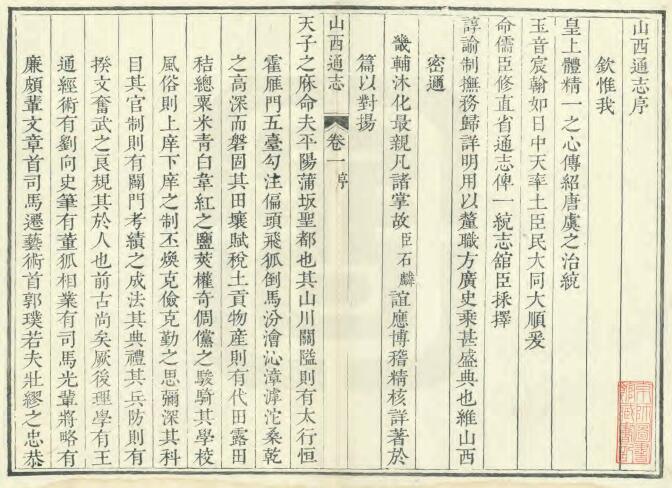 山西通志序
欽惟我
皇上體精一之心傳紹唐虞之治統
玉音宸翰如日中天率土臣民大同大順爰
命儒臣修直省通志俾一統志舘臣採擇
諄諭制撫務歸詳明用以釐職方廣史乘甚盛典也維山西
密邇
畿輔沐化最親凡諸掌故臣石麟誼應博稽精核詳著於
篇以對揚
山西通志
卷一
序
天子之庥命夫平陽蒲坂聖都也其山川關隘則有太行恒
霍雁門五臺勾注偏頭飛狐倒馬汾澮沁漳滹沱桑乾
之高深而磐固其田壤賦稅土貢物產則有代田露田
秸總粟米青白韋紅之鹽莢權奇倜儻之駿騎其學校
風俗則上庠下庠之制丕煥克儉克勤之思彌深其科
目其官制則有闢門考績之成法其典禮其兵防則有
揆文奮武之良規其於人也前古尚矣厥後理學有王
通經術有劉向史筆有董狐相業有司馬光輩將略有
廉頗輩文章首司馬遷藝術首郭璞若夫壯繆之忠恭